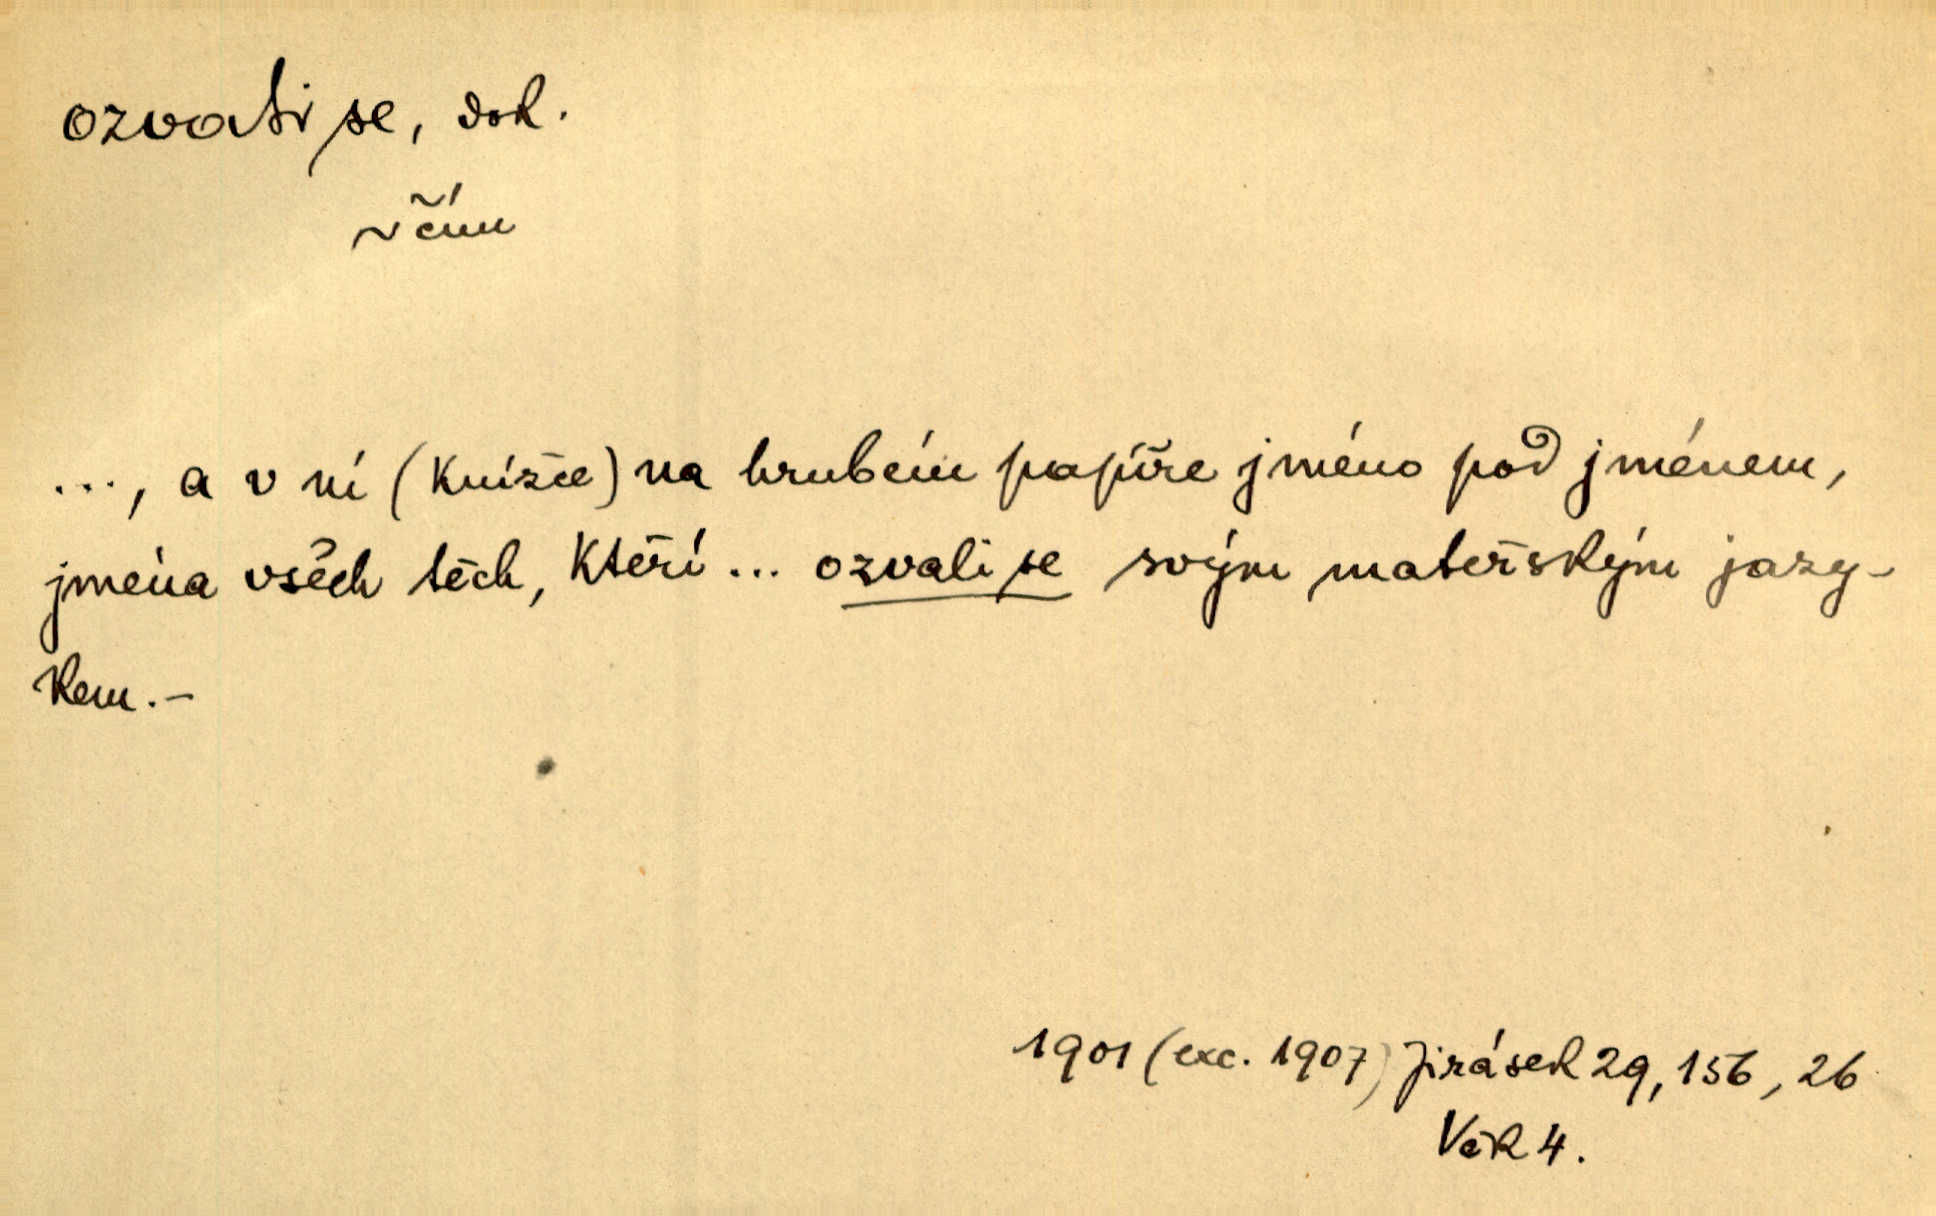 ozvati se, dok.
~ čím
..., a v ní (knížce) na hrubém papíře jméno pod jménem,
jména všech těch, kteří ... ozvali se svým mateřským jazy-
kem.-
1901 (exc. 1907) Jirásek 29, 156, 26
Věk 4.